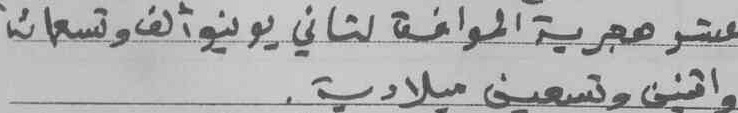 عشر هجرية الموافق لثاني يونيو ألف وتسعمائة
واثنين وتسعين ميلادية .